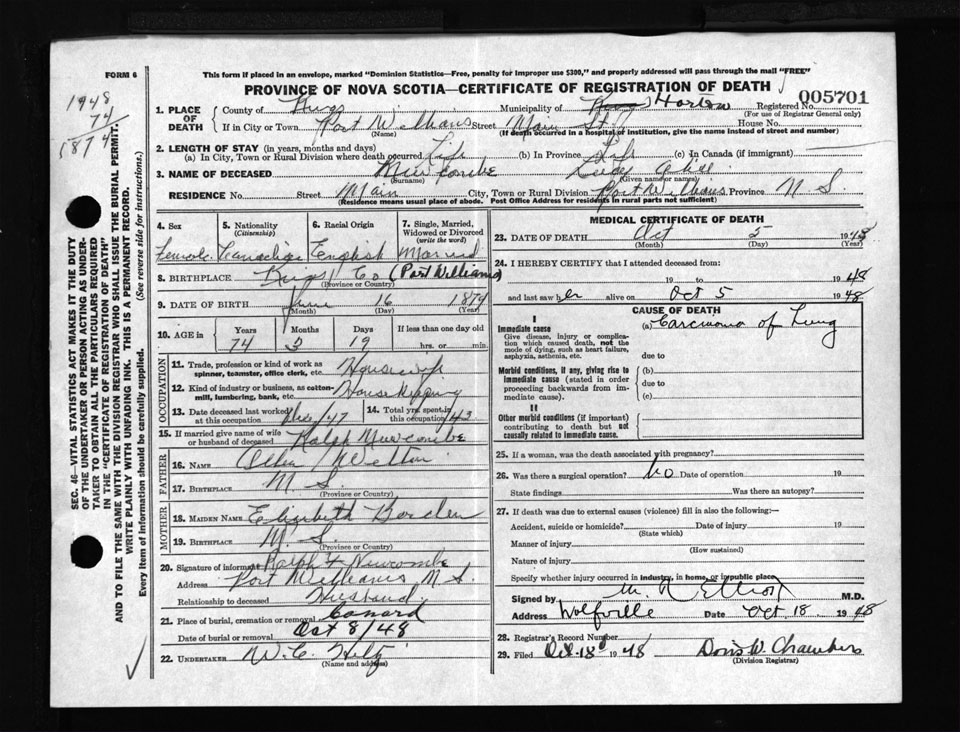 This form if placed in an envelope, marked "Dominion Statistics—Free, penalty for improper use $300," and properly addressed will pass through the mail "FREE"
FORM 6
PROVINCE OF NOVA SCOTIA—CERTIFICATE OF REGISTRATION OF DEATH
005701
1948
74
1874
5
1. PLACE OF DEATH
County of Kings Municipality of Kings Horton Registered No.
(For use of Registrar General only)
If in City or Town Port Williams Street Main St House No.
(Name) (If death occurred in a hospital of institution, give the name instead of street and number)
2. LENGTH OF STAY (in years, months and days)
(a) In City, Town or Rural Division where death occurred Life (b) In Province Life (c) In Canada (if immigrant)
3. NAME OF DECEASED Newcombe
(Surname) (Given name or names)
RESIDENCE No. Street Main City, Town or Rural Division Port Williams Province N S.
(Residence means usual place of abode. Post Office Address for residents in rural parts not sufficient)
4. Sex 5. Nationality (Citizenship) 6. Racial Origin 7. Single, Married, Widowed or Divorced (write the word)
Female Canadian English Married
8. BIRTHPLACE Kings Co (Port Williams)
(Province or Country)
9. DATE OF BIRTH June 16 1874
(Month) (Day) (Year)
10. AGE in Years Months Days If less than one day old
74 3 19 hrs. or min.
OCCUPATION
11. Trade, profession or kind of work as spinner, teamster, office clerk, etc. Housewife
12. Kind of industry or business, as cotton-mill, lumbering, bank, etc. Housekeeping
13. Date deceased last worked at this occupation /47 14. Total yrs. spent in this occupation 43
15. If married give name of wife or husband of deceased Ralph Newcombe
FATHER
16. NAME
17. BIRTHPLACE N. S.
(Province or Country)
MOTHER
18. MAIDEN NAME Elizabeth Borden
19. BIRTHPLACE N. S.
(Province or Country)
20. Signature of informant Ralph Newcombe
Address Port Williams N.S.
Relationship to deceased Husband
21. Place of burial, cremation or removal Canard
Date of burial or removal Oct 8/48
22. UNDERTAKER W. C. Hiltz
(Name and address)
MEDICAL CERTIFICATE OF DEATH
23. DATE OF DEATH Oct 5 1948
(Month) (Day) (Year)
24. I HEREBY CERTIFY that I attended deceased from:
19 to 1948
and last saw her alive on Oct 5 1948
CAUSE OF DEATH
I
Immediate cause (a) Carcinoma of Lung
Give disease, injury or complication which caused death, not the mode of dying, such as heart failure, asphyxia, asthenia, etc. due to
Morbid conditions, if any, giving rise to immediate cause (stated in order proceeding backwards from immediate cause). (b) due to (c)
II
Other morbid conditions (if important) contributing to death but not causally related to immediate cause.
25. If a woman, was the death associated with pregnancy?
26. Was there a surgical operation? No Date of operation 19
State findings Was there an autopsy?
27. If death was due to external causes (violence) fill in also the following:—
Accident, suicide or homicide? Date of injury 19
(State which)
Manner of injury
(How sustained)
Nature of injury
Specify whether injury occurred in industry, in home, or in public place
Signed by Elliott M.D.
Address Wolfville Date Oct 18 1948
28. Registrar's Record Number
29. Filed Oct. 18 1948 Doris W. Chambers
(Division Registrar)
SEC. 46—VITAL STATISTICS ACT MAKES IT THE DUTY
OF THE UNDERTAKER OR PERSON ACTING AS UNDER-
TAKER TO OBTAIN ALL THE PARTICULARS REQUIRED
IN THE "CERTIFICATE OF REGISTRATION OF DEATH"
AND TO FILE THE SAME WITH THE DIVISION REGISTRAR WHO SHALL ISSUE THE BURIAL PERMIT.
WRITE PLAINLY WITH UNFADING INK. THIS IS A PERMANENT RECORD.
Every item of information should be carefully supplied. (See reverse side for instructions.)